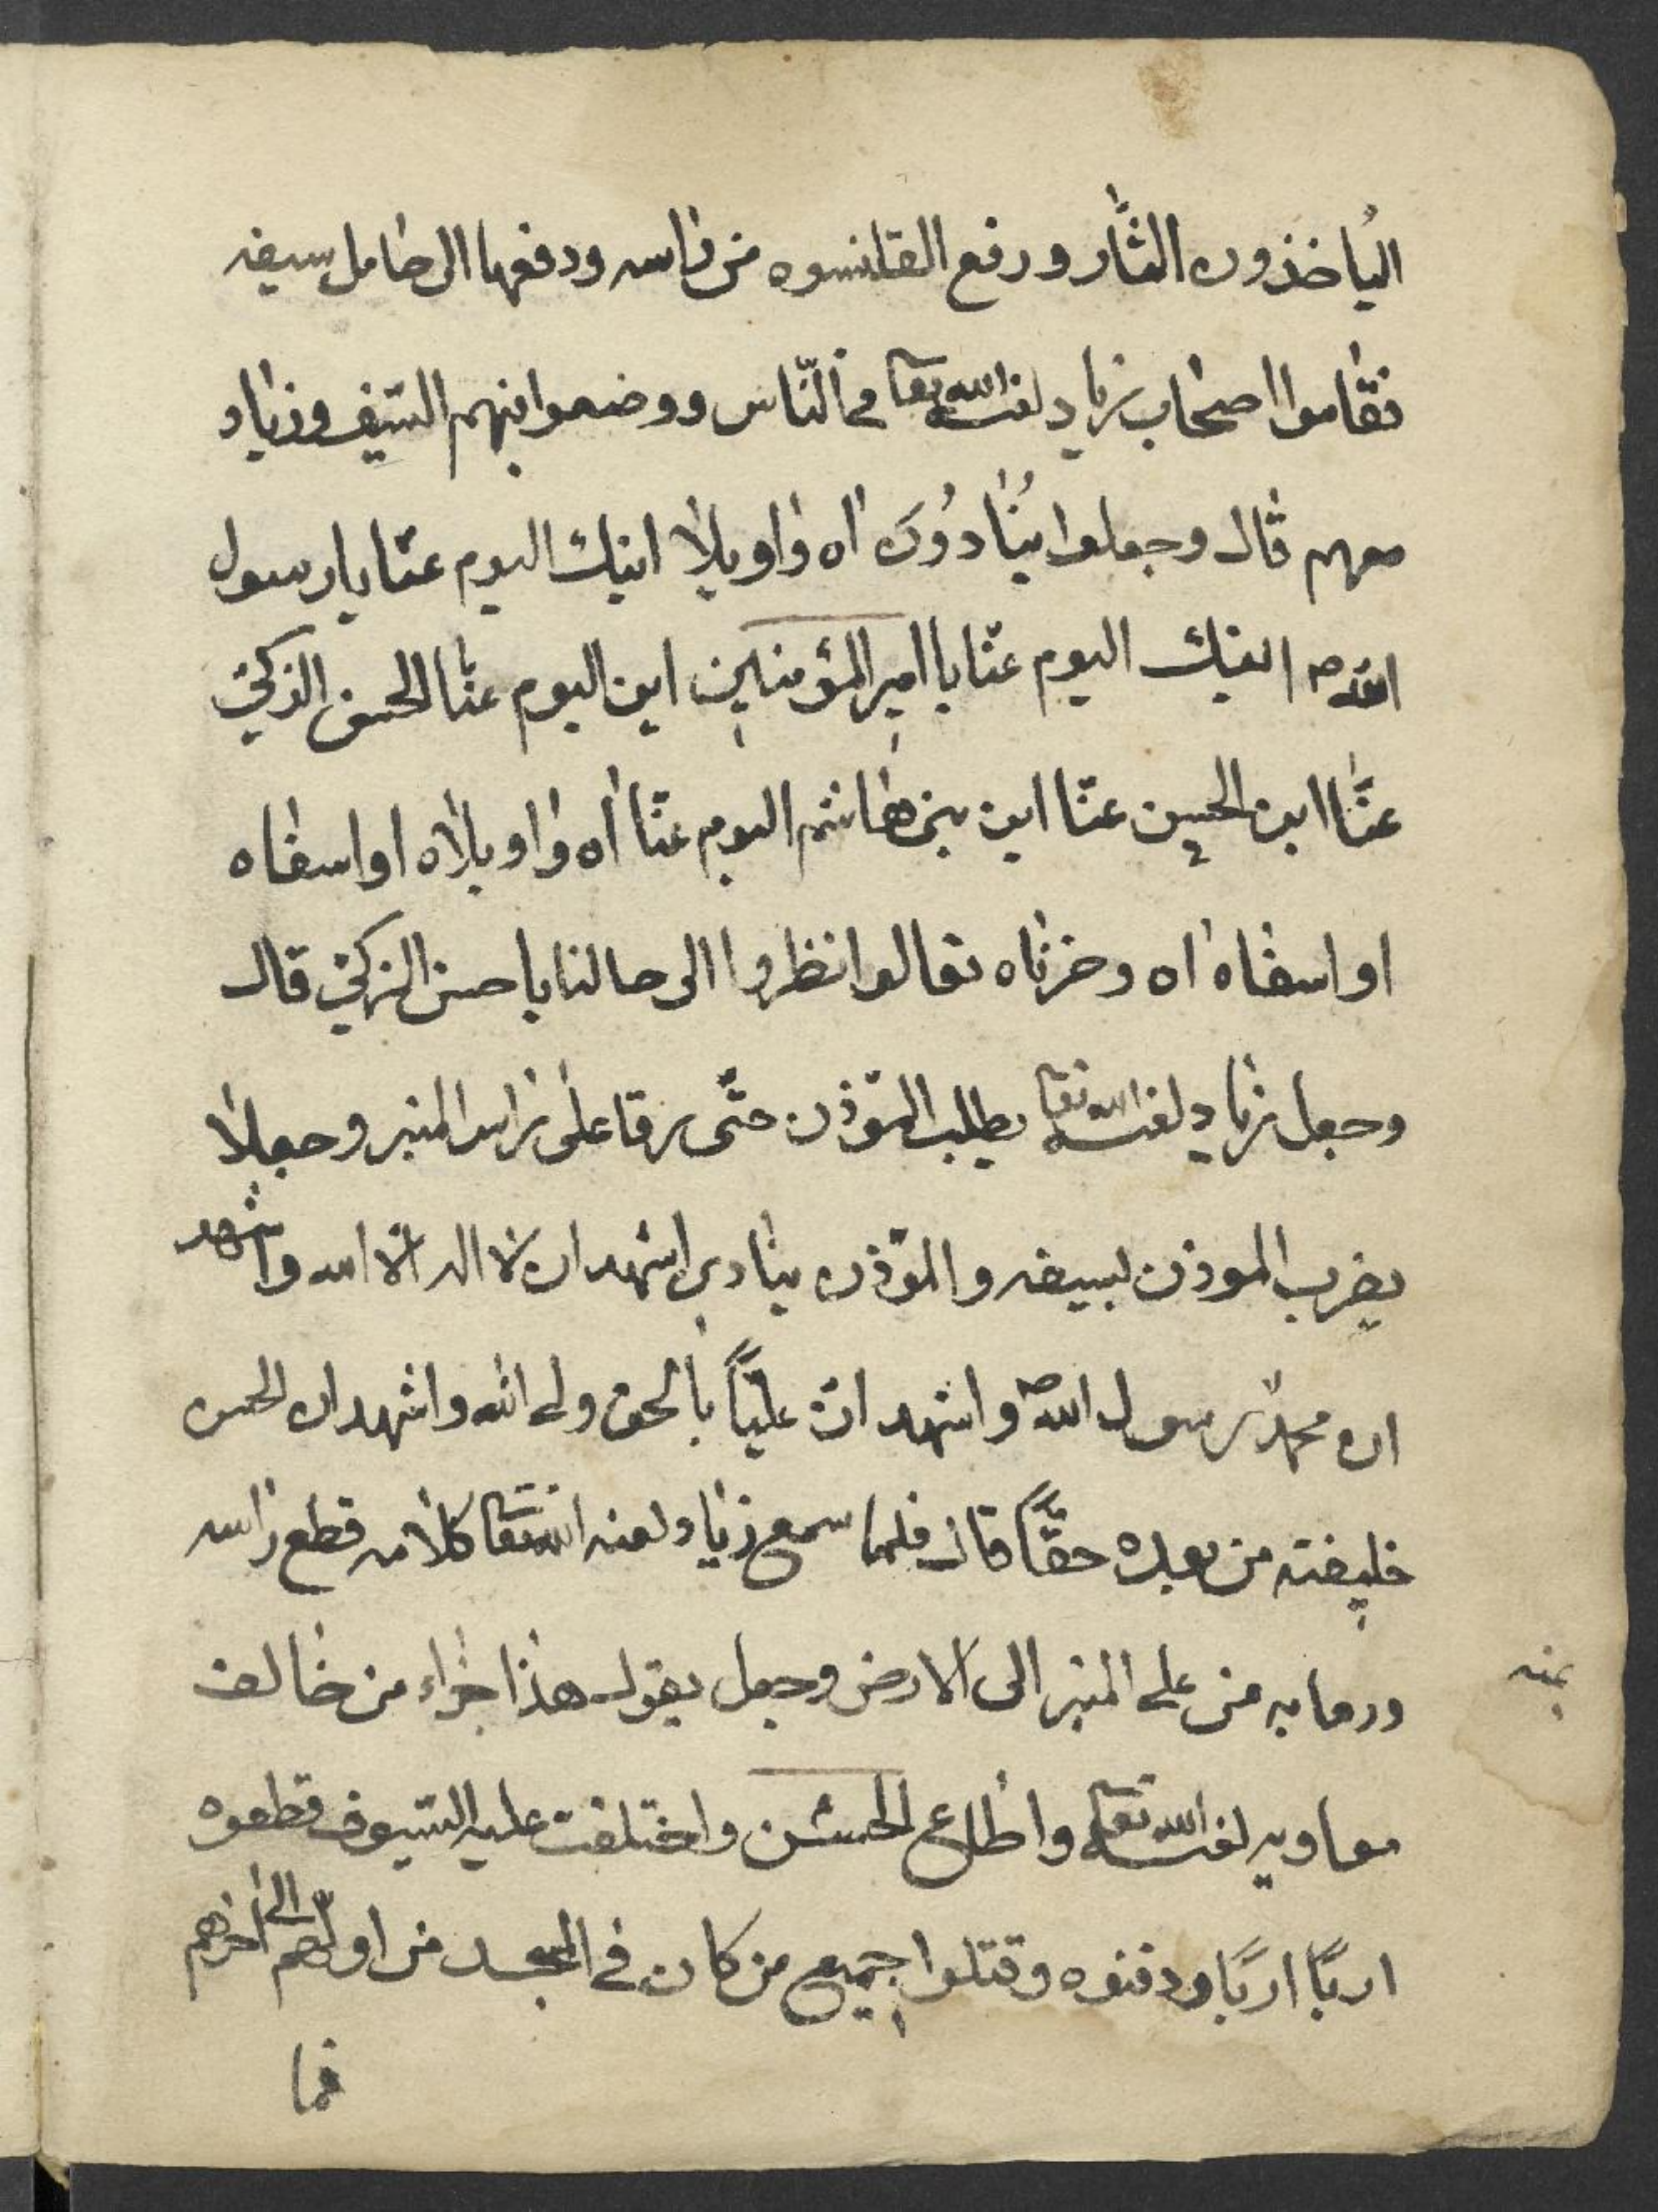 اليُاخذون الثَّار ورفع القلنسوه من راسه ودفعها الى حامل سيفه
فقاموا اصحاب زياد لعنه الله تعا في النّاس ووضعوا فيهم السّيف وزياد
معهم قال وجعلوا يُنٰادوُن اه واويلا اينك اليوم عنّا يا رسول
الله ص اينك اليوم عنّا يا امير المؤمنين اين اليوم عنّا الحسن الذكي
عنّا اين الحسين عنّا اين بني هاشم اليوم عنّا اه واويلاه او اسفاه
او اسفاه اه وحزناه تعالوا انظروا الى حالنا يا حسن الزكي قال
وجعل زياد لعنه الله تعا يطلب المؤذن حتّى رقا على راس المنبر وجعلا
يضرب الموذن بسيفه والمؤذن ينادي اشهد ان لا اله الا الله واشهد
ان محمد رسول الله ص واشهد ان عليّاً بالحق ولي الله واشهد ان الحسن
خليفته من بعده حقّاً قال فلما سمع زياد لعنه الله تعا كلامه قطع راسه
ورما به من على المنبر الى الارض وجعل يقول هذا جزاء من خالف
معاويه لعنه الله تعا واطاع الحسن واختلفت عليه السّيوف قطعوه
اربًا اربًا ودفنوه وقتلوا جميع من كان في المسجد من اولهم الى اخرهم
فما